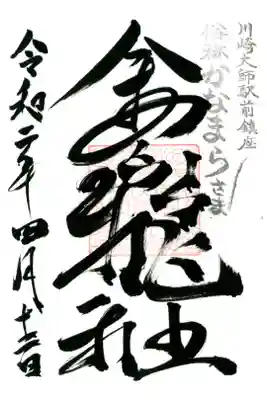 川崎大師駅前鎮座
俗称かなまらさま
金山神社
令和二年四月十二日